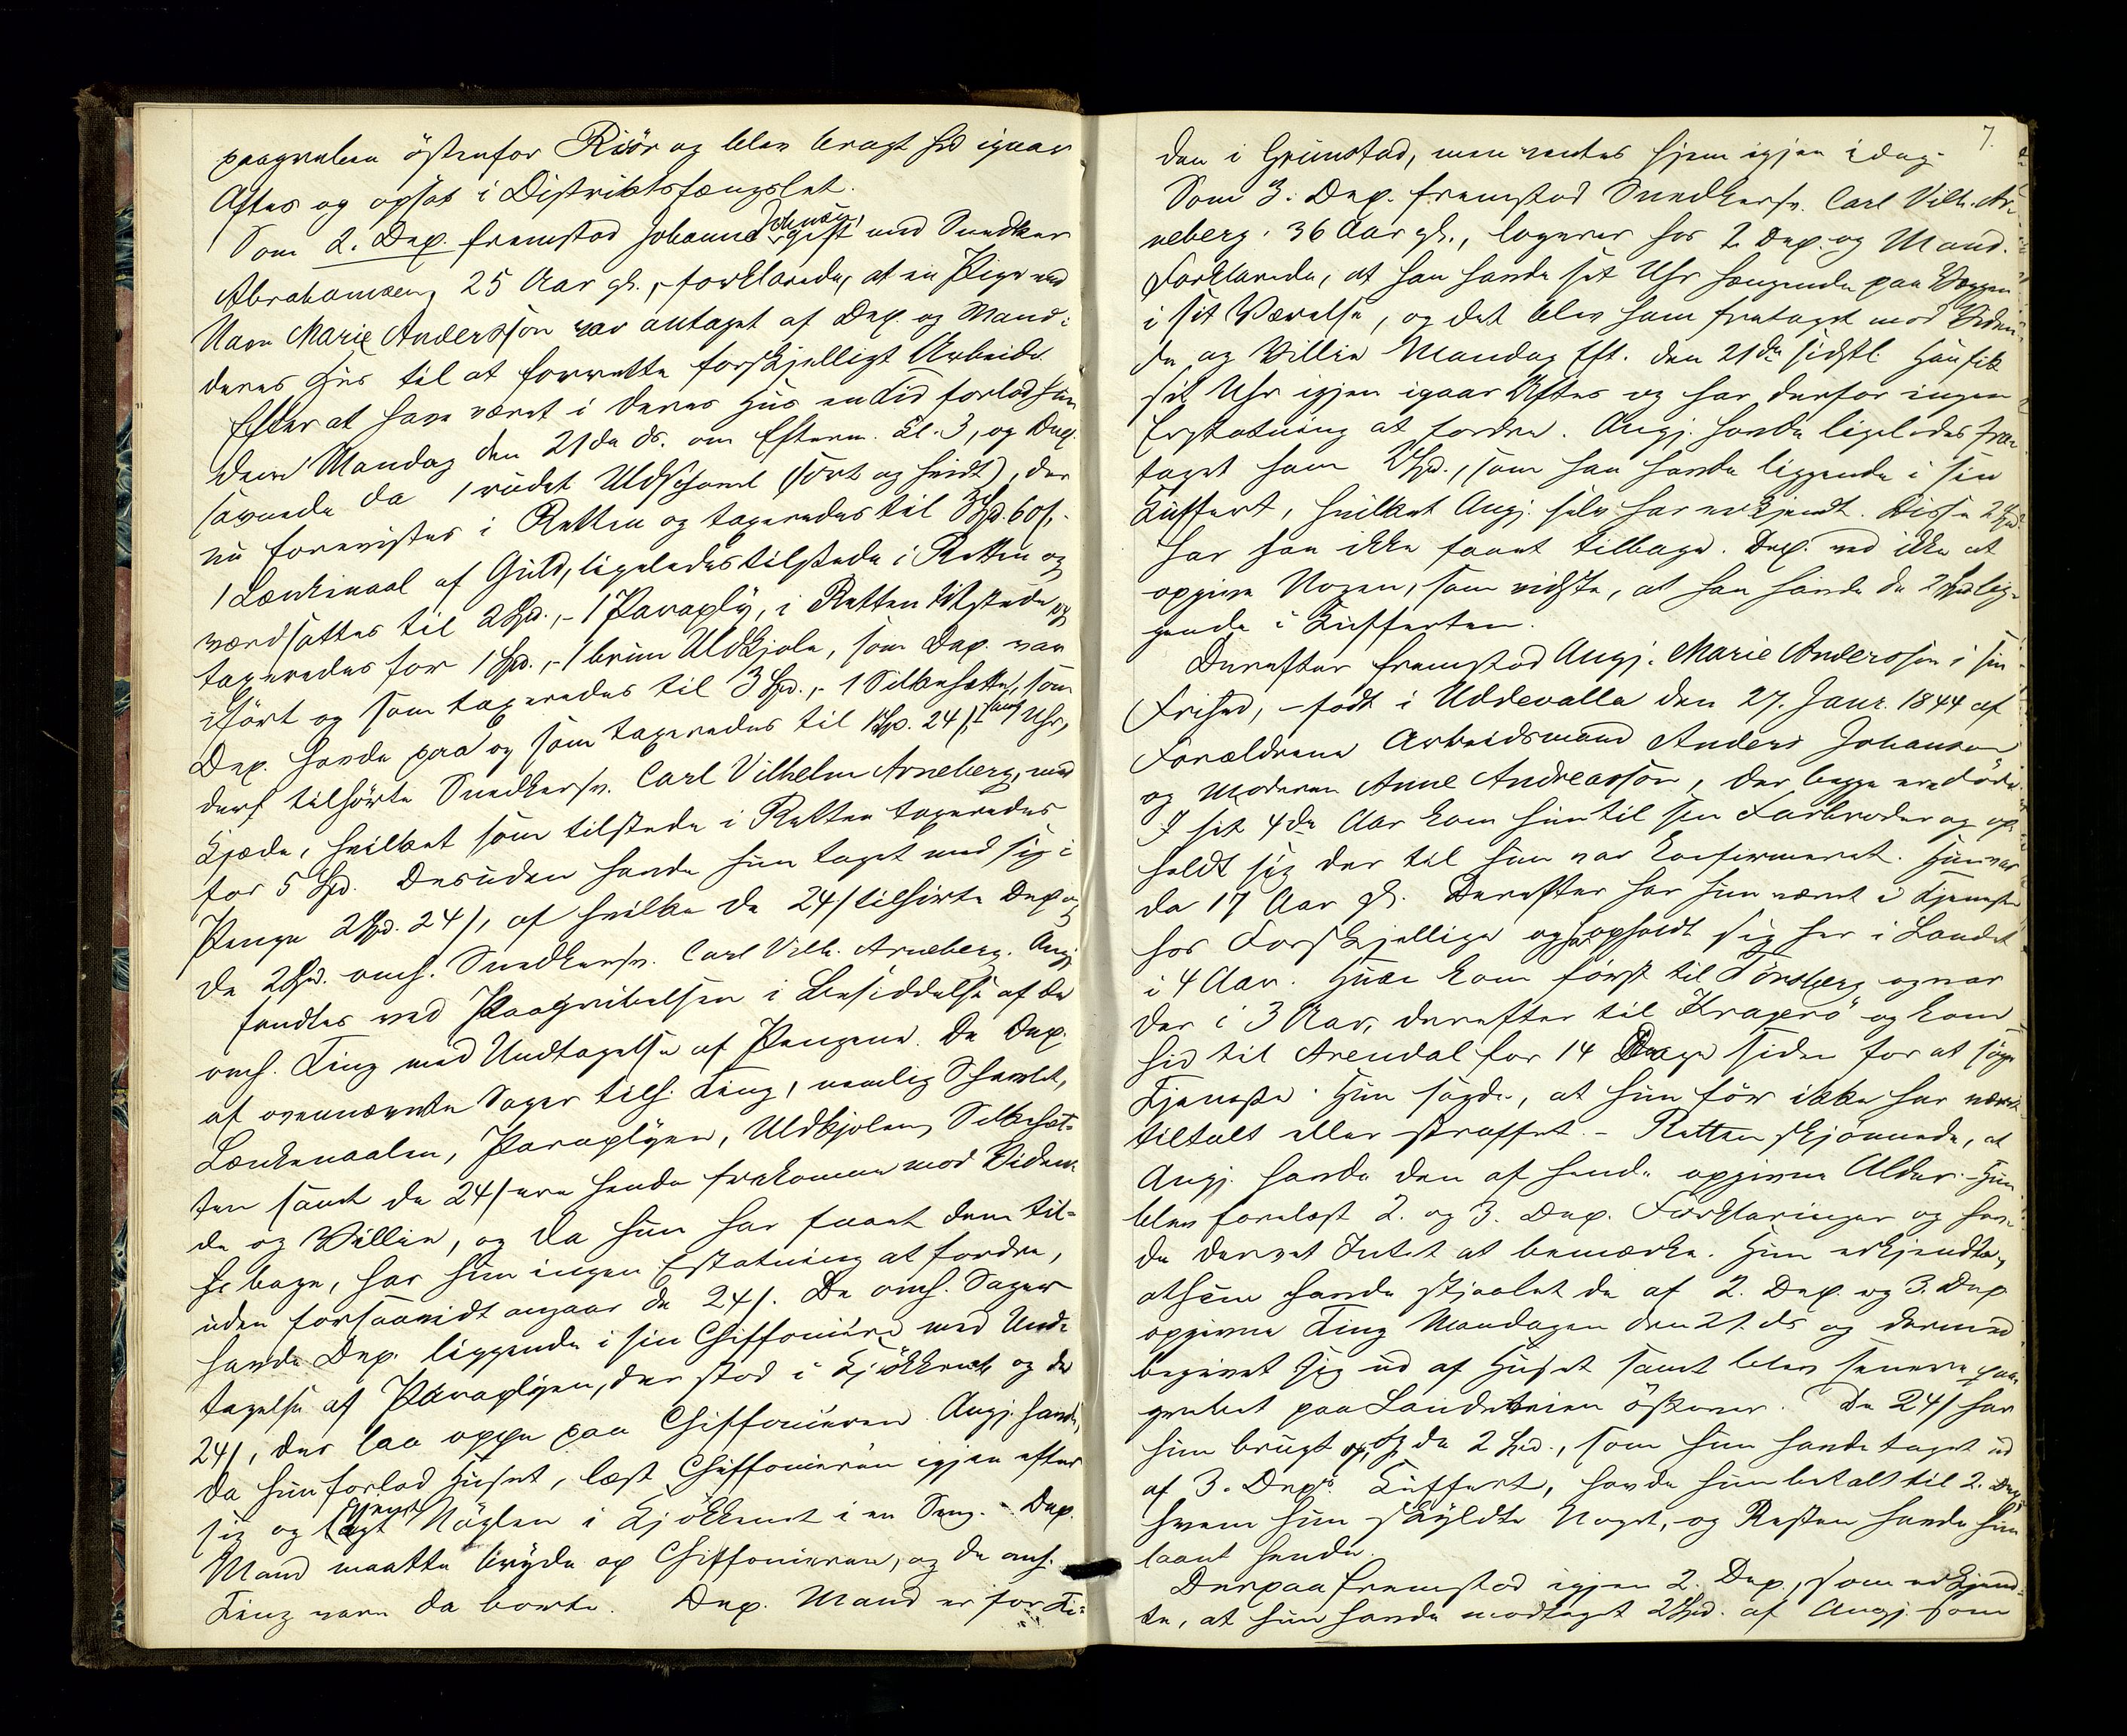 paagreben östenfor Risör og blev bragt hid igaar
Aftes og opsat i Distriktsfængslet.
Som 2. Dep. fremstod Johanne Johnsen, gift med Snedker
Abrahamsen, 25 Aar gl., forklarede, at en Pige ved
Navn Marie Andersson var antaget af Dep. og Mand i
deres Hus til at forrette forskjelligt Arbeide.
Efterat have været i deres Hus en Tid forlod hun
dem Mandag den 21de ds. om Efterm. Kl. 3, og Dep.
savnede da 1 rudet Uldschavl (sort og hvidt), der
nu forevistes i Retten og taxeredes til 3 Spd. 60 s,
1 Lænkenaal af Guld, ligeledes tilstede i Retten og
værdsattes til 2 Spd., – 1 Paraply, i Retten tilstede og
taxeredes for 1 Spd., – 1 brun Uldkjole, som Dep. var
iført og som taxeredes til 3 Spd., – 1 Silkehætte, som
Dep. havde paa og som taxeredes til 1 Spd. 24 s, 1 Uhr,
der tilhörte Snedkersv. Carl Vilhelm Arneberg, med
Kjæde, hvilket som tilstede i Retten taxeredes
for 5 Spd. Desuden havde hun taget med sig i
Penge 2 Spd. 24 s, af hvilke de 24 s tilhörte Dep. og
de 2 Spd. omh. Snedkersv. Carl Vilh. Arneberg. Angj.
fandtes ved Paagribelsen i Besiddelse af de
omh. Ting med Undtagelse af Pengene. De Dep.
af ovennævnte Sager tilh. Ting, nemlig Schavlet,
Lænkenaalen, Paraplyen, Uldkjolen, Silkehæt-
ten samt de 24 s ere hende frakomne mod Viden-
de og Villie, og da hun har faaet dem til-
bage, har hun ingen Erstatning at fordre,
uden forsaavidt angaar de 24 s. De omh. Sager
havde Dep. liggende i sin Chiffoniere med Und-
tagelse af Paraplyen, der stod i Kjökkenet og de
24 s, der laa oppe paa Chiffonieren. Angj. havde,
da hun forlod Huset, læst Chiffonieren igjen efter
sig og lagt Nöglen i Kjökkenet i en Seng. – Dep.
Mand maatte bryde op Chiffonieren, og de omh.
Ting vare da borte. Dep. Mand er for Ti-
7.
den i Grimstad, men ventes hjem igjen idag.
Som 3. Dep. fremstod Snedkersv. Carl Vilh. Ar-
neberg, 36 Aar gl., logerer hos 2. Dep. og Mand.
Forklarede, at han havde sit Uhr hængende paa Væggen
i sit Værelse, og det blev ham frataget mod Viden-
de og Villie Mandag Eft. den 21de sidstl. Han fik
sit Uhr igjen igaar Aftes og har derfor ingen
Erstatning at fordre. Angj. havde ligeledes fra-
taget ham 2 Spd., som han havde liggende i sin
Kuffert, hvilket Angj. selv har erkjendt. Disse 2 Spd.
har han ikke faaet tilbage. Dep. ved ikke at
opgive Nogen, som vidste, at han havde de 2 Spd. lig-
gende i Kufferten.
Derefter fremstod Angj. Marie Andersson i sin
Frihed, – födt i Uddevalla den 27. Janr. 1844 af
Forældrene Arbeidsmand Anders Johanson
og Moderen Anne Andreasson, der begge ere döde.
I sit 4de Aar kom hun til sin Farbroder og op-
holdt sig der til hun var konfirmeret. Hun var
da 17 Aar gl. Derefter har hun været i Tjeneste
hos Forskjellige og har opholdt sig her i Landet
i 4 Aar. Hun kom först til Tönsberg og var
der i 3 Aar, derefter til Kragerö og kom
hid til Arendal for 14 Dage siden for at söge
Tjeneste. Hun sagde, at hun för ikke har været
tiltalt eller straffet. – Retten skjönnede, at
Angj. havde den af hende opgivne Alder. Hun
blev forelæst 2. og 3. Dep. Forklaringer og hav-
de derved Intet at bemærke. Hun erkjendte,
at hun havde stjaalet de af 2. Dep. og 3. Dep.
opgivne Ting Mandagen den 21. ds og dermed
begivet sig ud af Huset samt blev senere paa-
grebet paa Landeveien östover. De 24 s har
hun brugt op, og de 2 Spd., som hun havde taget ud
af 3. Dep's Kuffert, havde hun betalt til 2. Dep.,
hvem hun skyldte Noget, og Resten havde hun
laant hende.
Derpaa fremstod igjen 2. Dep., som erkjend-
te, at hun havde modtaget 2 Spd. af Angj. som